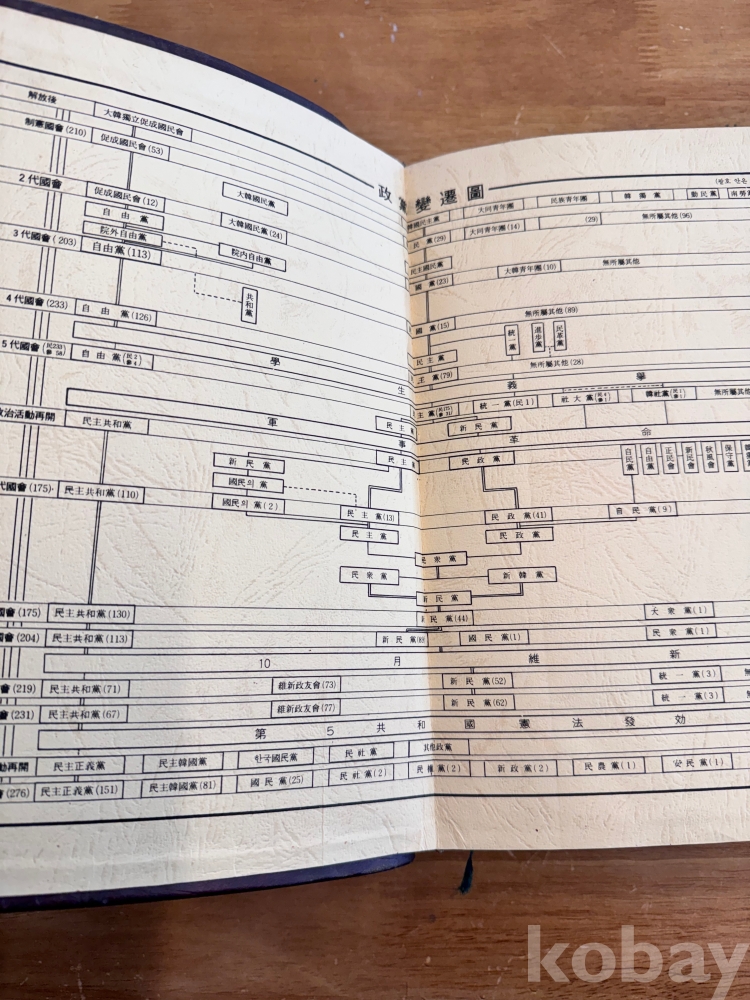 政黨變遷圖
(괄호 안은
解放後 大韓獨立促成國民會 韓國民主黨 大同青年團 民族青年團 韓獨黨 勤民黨 南勞黨
制憲國會(210) 促成國民會(53) 民 黨(29) 大同青年團(14) (29) 無所屬其他(96)
大韓國民黨 民主國民黨
2代國會 促成國民會(12) 大韓國民黨(24) 國 黨(23) 大韓青年團(10) 無所屬其他
自 由 黨
院外自由黨 院內自由黨
3代國會(203) 自由黨(113) 國 黨(15) 無所屬其他(89)
共和黨 民 主 黨 統一黨 進步黨 民革黨
4代國會(233) 自 由 黨(126) 主 黨(79) 無所屬其他(28)
學 生 義 擧
5代國會(民233 參 58) 自 由 黨(民2 參4) 主 黨(民175 參31) 統一黨(民1) 社大黨(民4 參1) 韓社黨(民1 參1) 無所屬其他
民 主 黨 新 民 黨
軍 事 革 命
政治活動再開 民主共和黨 民 主 黨 民 政 黨 自民黨 自由黨 正民會 新民會 秋風會 保守黨
新 民 黨
國民의 黨
代國會(175) 民主共和黨(110) 國民의 黨(2) 民 主 黨(13) 民 政 黨(41) 自 民 黨(9)
民 主 黨 民 政 黨
民 衆 黨
民 衆 黨 新 韓 黨
新 民 黨
國會(175) 民主共和黨(130) 新 民 黨(44) 大 衆 黨(1)
國會(204) 民主共和黨(113) 新 民 黨(89) 國 民 黨(1) 民 衆 黨(1)
10 月 維 新
會(219) 民主共和黨(71) 維新政友會(73) 新 民 黨(52) 統 一 黨(3)
會(231) 民主共和黨(67) 維新政友會(77) 新 民 黨(62) 統 一 黨(3)
第 5 共 和 國 憲 法 發 効
動再開 民主正義黨 民主韓國黨 한국國民黨 民 社 黨 其他政黨
(276) 民主正義黨(151) 民主韓國黨(81) 國 民 黨(25) 民 社 黨(2) 民 權 黨(2) 新 政 黨(2) 民 農 黨(1) 安 民 黨(1)
kobay